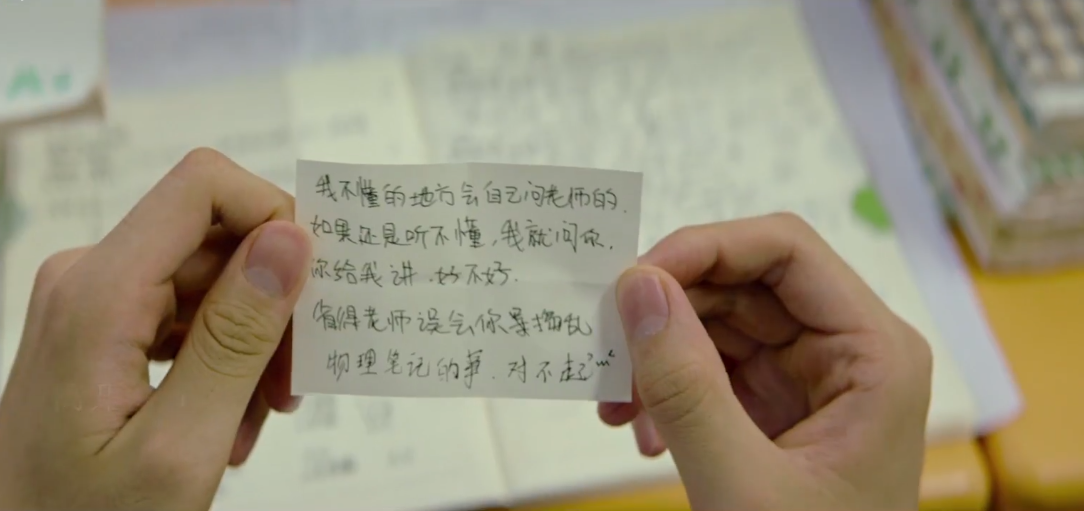 我不懂的地方会自己问老师的.
如果还是听不懂,我就问你,
你给我讲.好不好.
省得老师误会你是捣乱
物理笔记的事.对不起